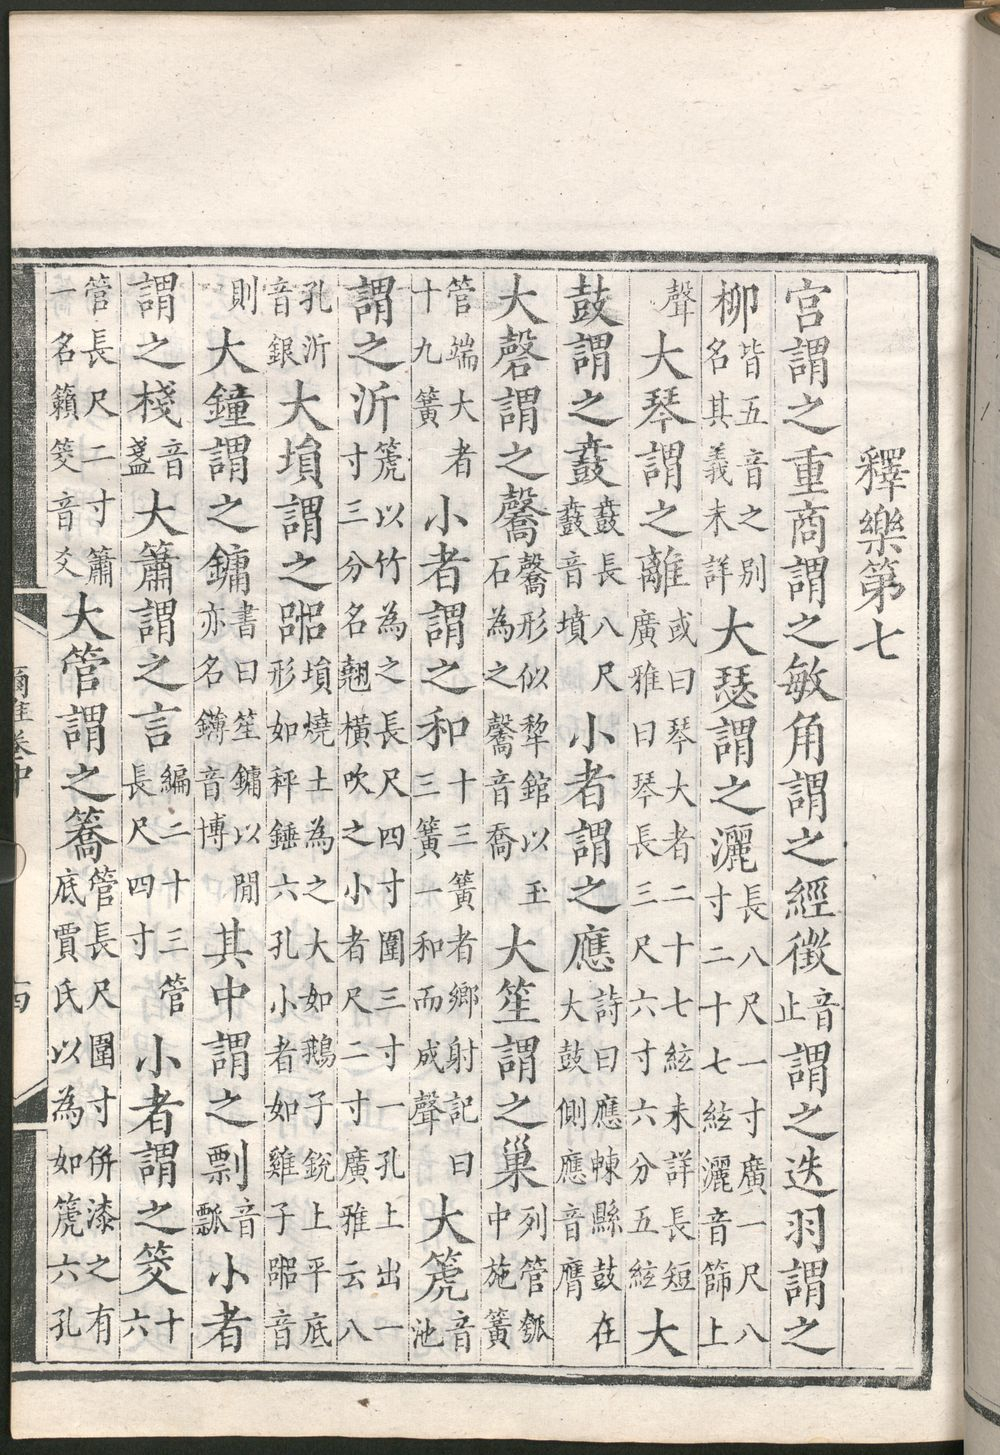 釋樂第七
宮謂之重商謂之敏角謂之經徵音止謂之迭羽謂之
柳皆五音之别名其義未詳大瑟謂之灑長八尺一寸廣一尺八寸二十七絃灑音篩上
聲大琴謂之離或曰琴大者二十七絃未詳長短廣雅曰琴長三尺六寸六分五絃大
鼓謂之鼖鼖長八尺鼖音墳小者謂之應詩曰應朄縣鼓在大鼓側應音膺
大磬謂之毊毊形似犂錧以玉石為之毊音喬大笙謂之巢列管瓠中施簧
管端大者十九簧小者謂之和十三簧者鄉射記曰三簧一和而成聲大篪音池
謂之沂篪以竹為之長尺四寸圍三寸一孔上出一寸三分名翹橫吹之小者尺二寸廣雅云八
孔沂音銀大塤謂之嘂塤燒土為之大如鵝子銳上平底形如秤錘六孔小者如雞子嘂音
則大鐘謂之鏞書曰笙鏞以閒亦名鑮音博其中謂之剽音瓢小者
謂之棧音盞大簫謂之言編二十三管長尺四寸小者謂之筊十六
管長尺二寸簫一名籟筊音爻大管謂之簥管長尺圍寸併漆之有底賈氏以為如篪六孔
爾雅卷中